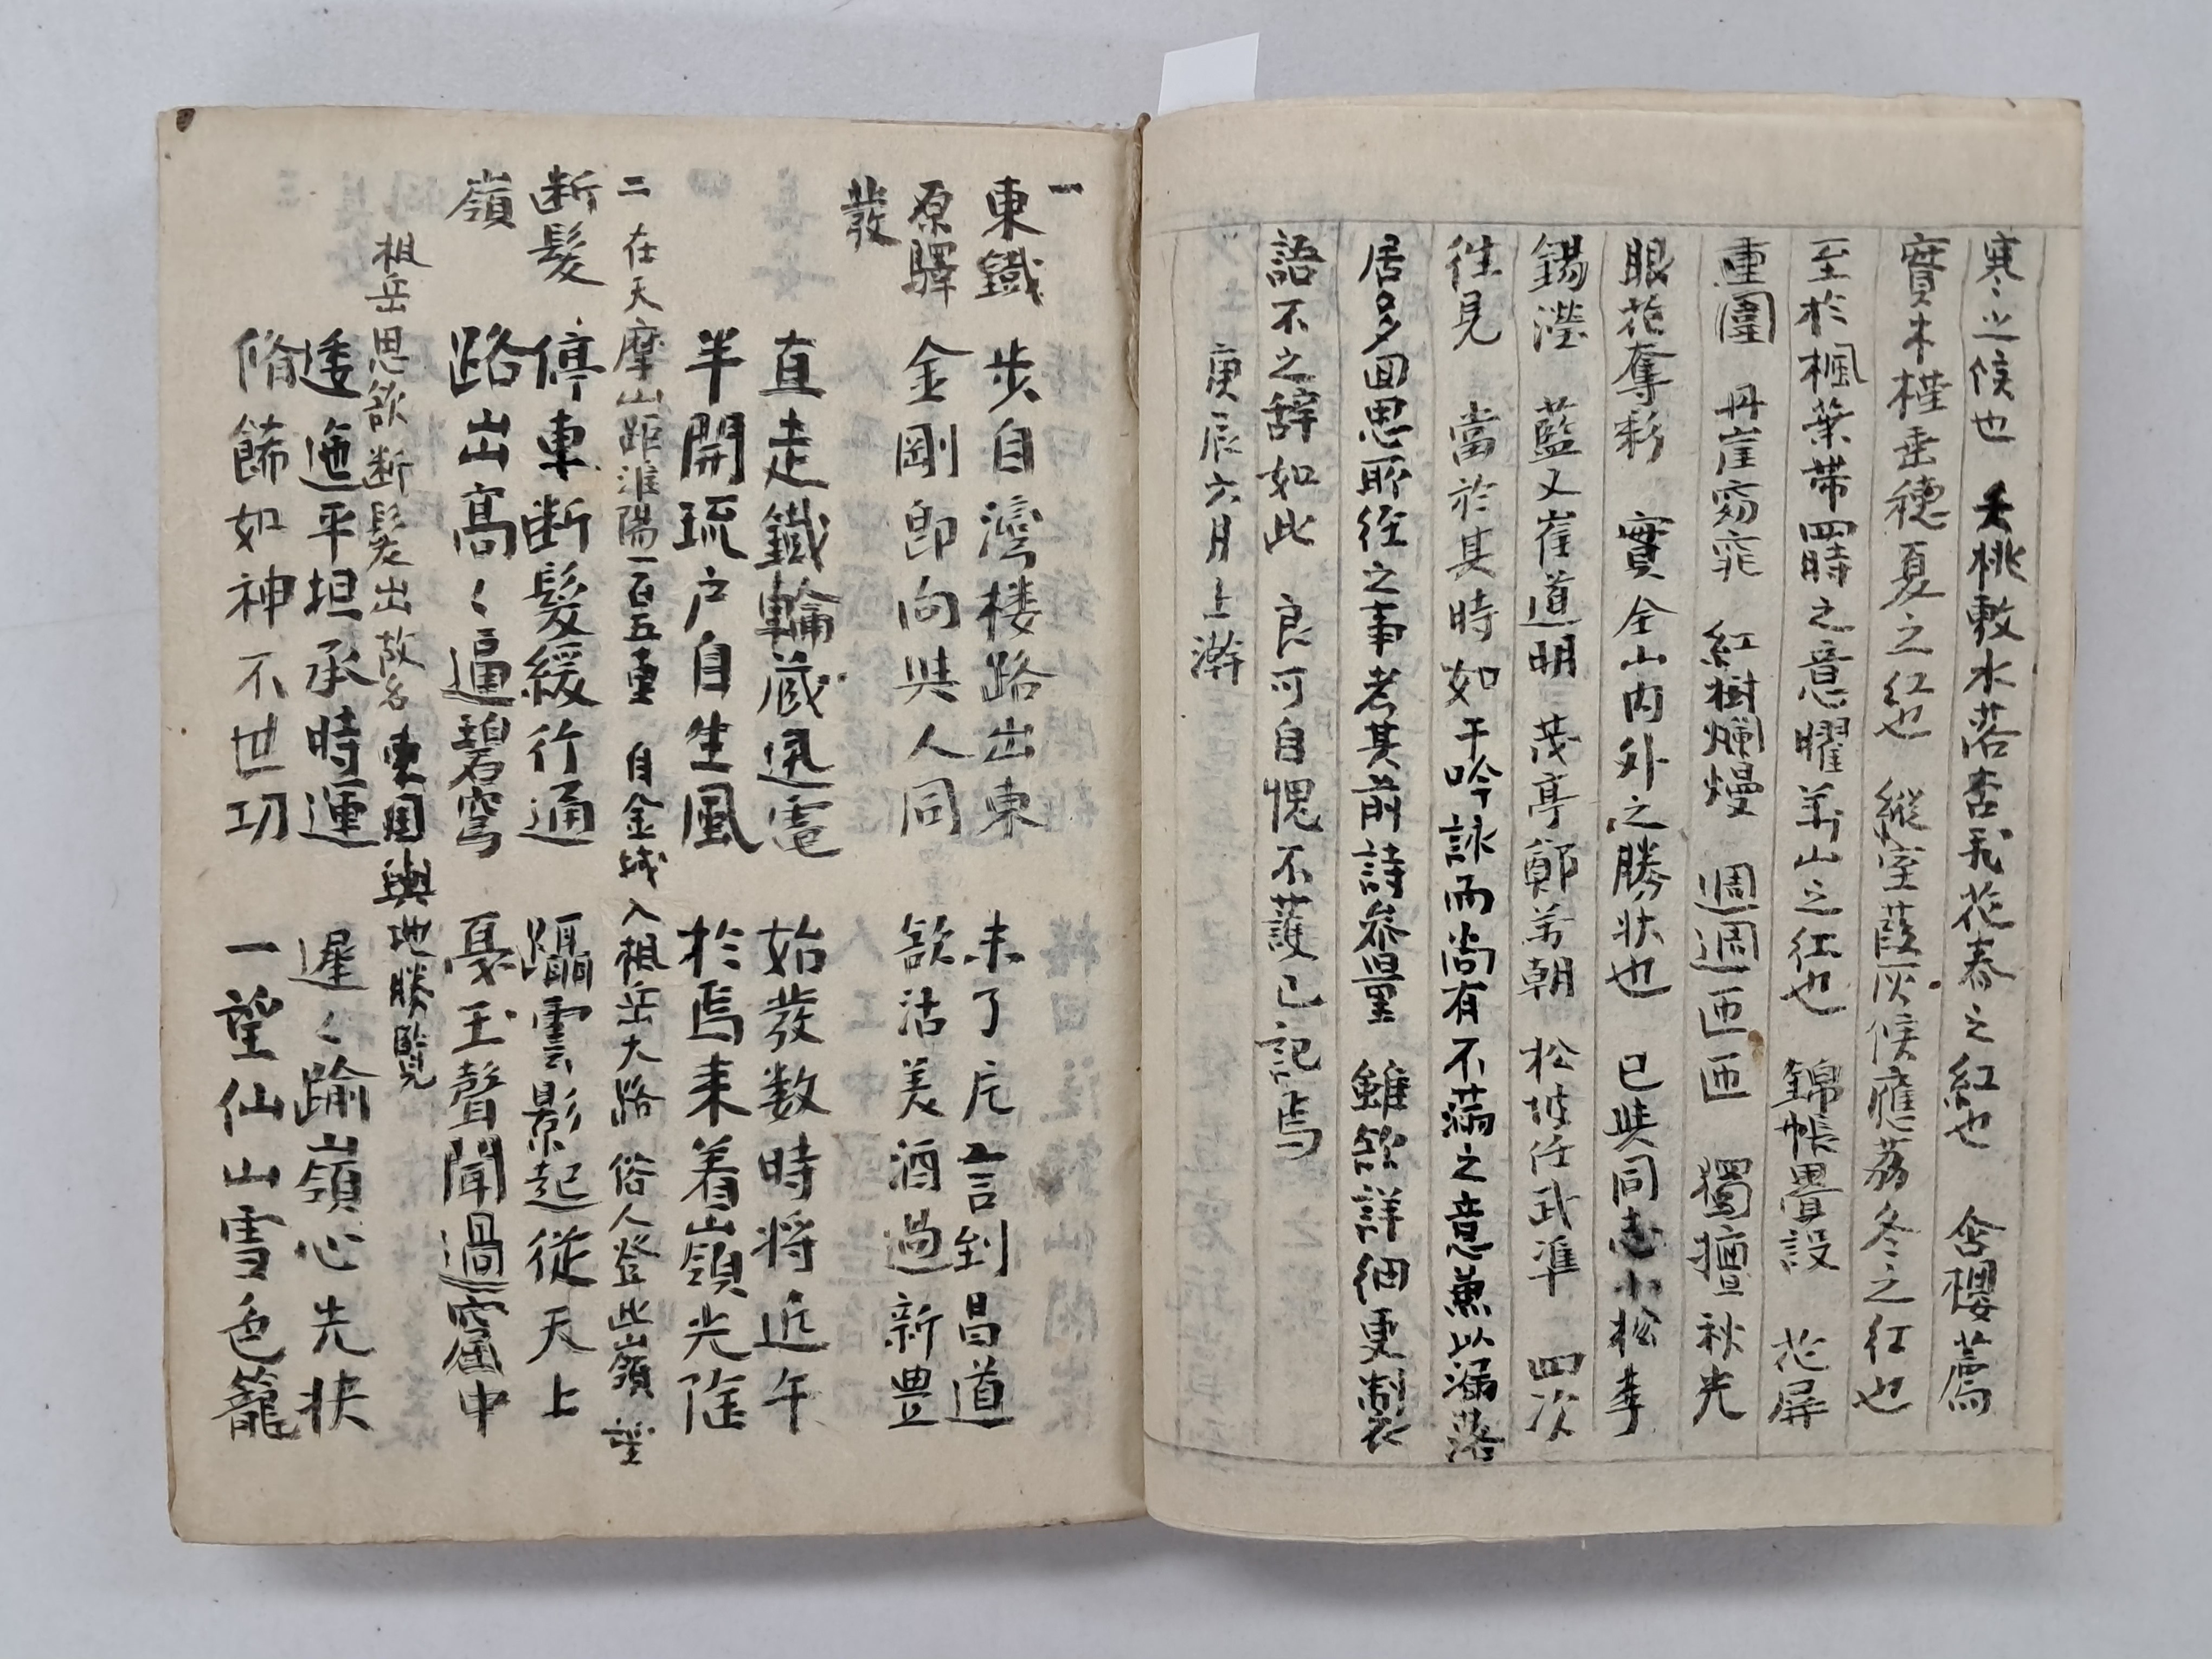 寒之候也 夭桃敷水落杏飛花春之紅也 含櫻薦
實木槿垂穗夏之紅也 緹室葭灰候應荔冬之紅也
至於楓葉帯四時之意曜萬山之紅也 錦帳疊設 花屏
重圍 丹崖窈窕 紅樹爛熳 週週匝匝 獨擅秋光
眼花奪彩 實全山内外之勝状也 已與同志小松李
錫瀅 藍又崔道明 茂亭鄭萬朝 松坡任武準 四次
往見 當於其時如干吟詠而尚有不滿之意兼以漏落
居多回思所經之事考其前詩參量 雖欲詳細更製
語不之辞如此 良可自愧不護已記焉
庚辰六月上澣
一
東鐵 步自灣楼路出東 未了片言到昌道
原驛 金剛郎向與人同 欲沽美酒過新豊
發
直走鐵輪蔵迅電 始發数時将近午
半開琉户自生風 於焉来着嶺光陰
二 在天摩山距淮陽一百五里 自金城入祖岳大路 俗人登此嶺 望
断髮 停車断髮緩行通 躡雲影起従天上
嶺 路出高〻逼碧穹 戞玉聲聞過窟中
祖岳思欲断髮出故名 東国輿地勝覧
逶迤平坦承時運 遲〻踰嶺心先状
脩餙如神不世功 一望仙山雪色籠